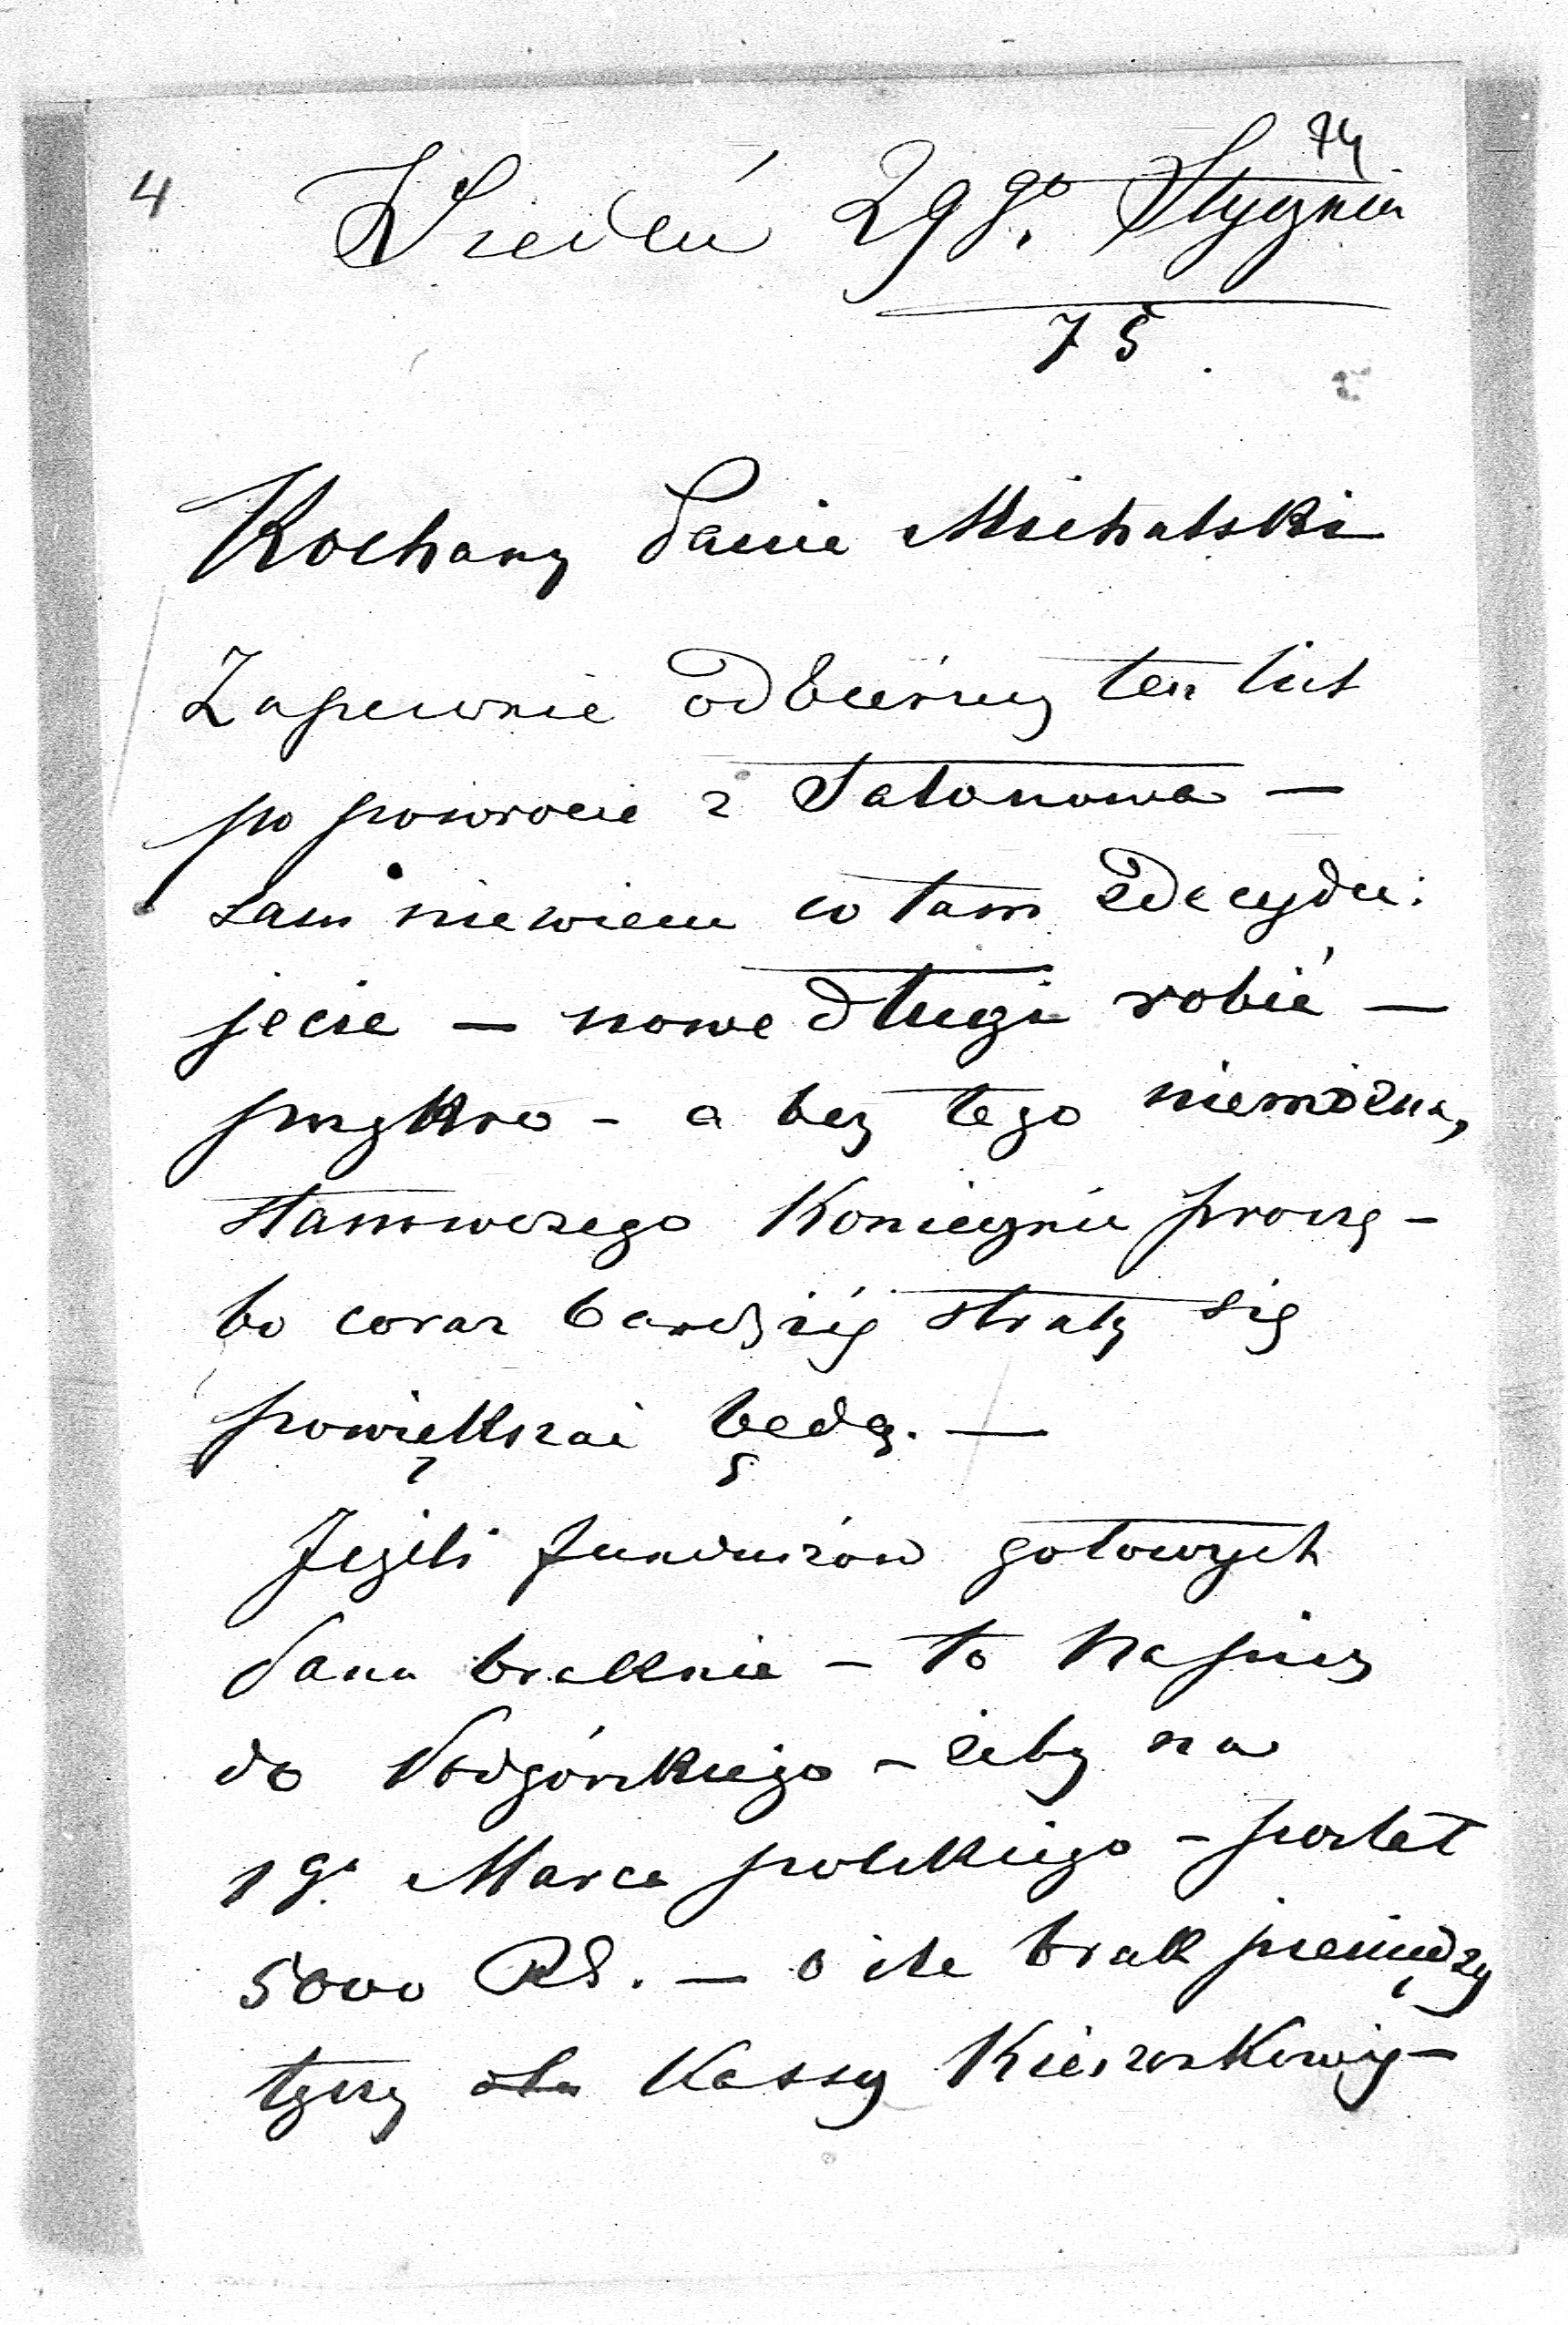 4
74
Wiedeń 29go Stycznia
75
Kochany Panie Michalski
Zapewnie odbierzesz ten list
po powrocie z Satanowa —
sam niewiem co tam zdecydu:
jecie — nowe długi robić —
przykro - a bez tego niemożna,
stanowczego Koniecznie proszę -
bo coraz bardziéj straty się
powiększać będą. —
Jeżeli funduszów gotowych
Panu braknie - to napisz
do Podgórskiego - żeby na
1go Marca polskiego - posłał
5000 RS. — o ile brak pieniędzy
tyczy Kassy Kieszonkowéj —